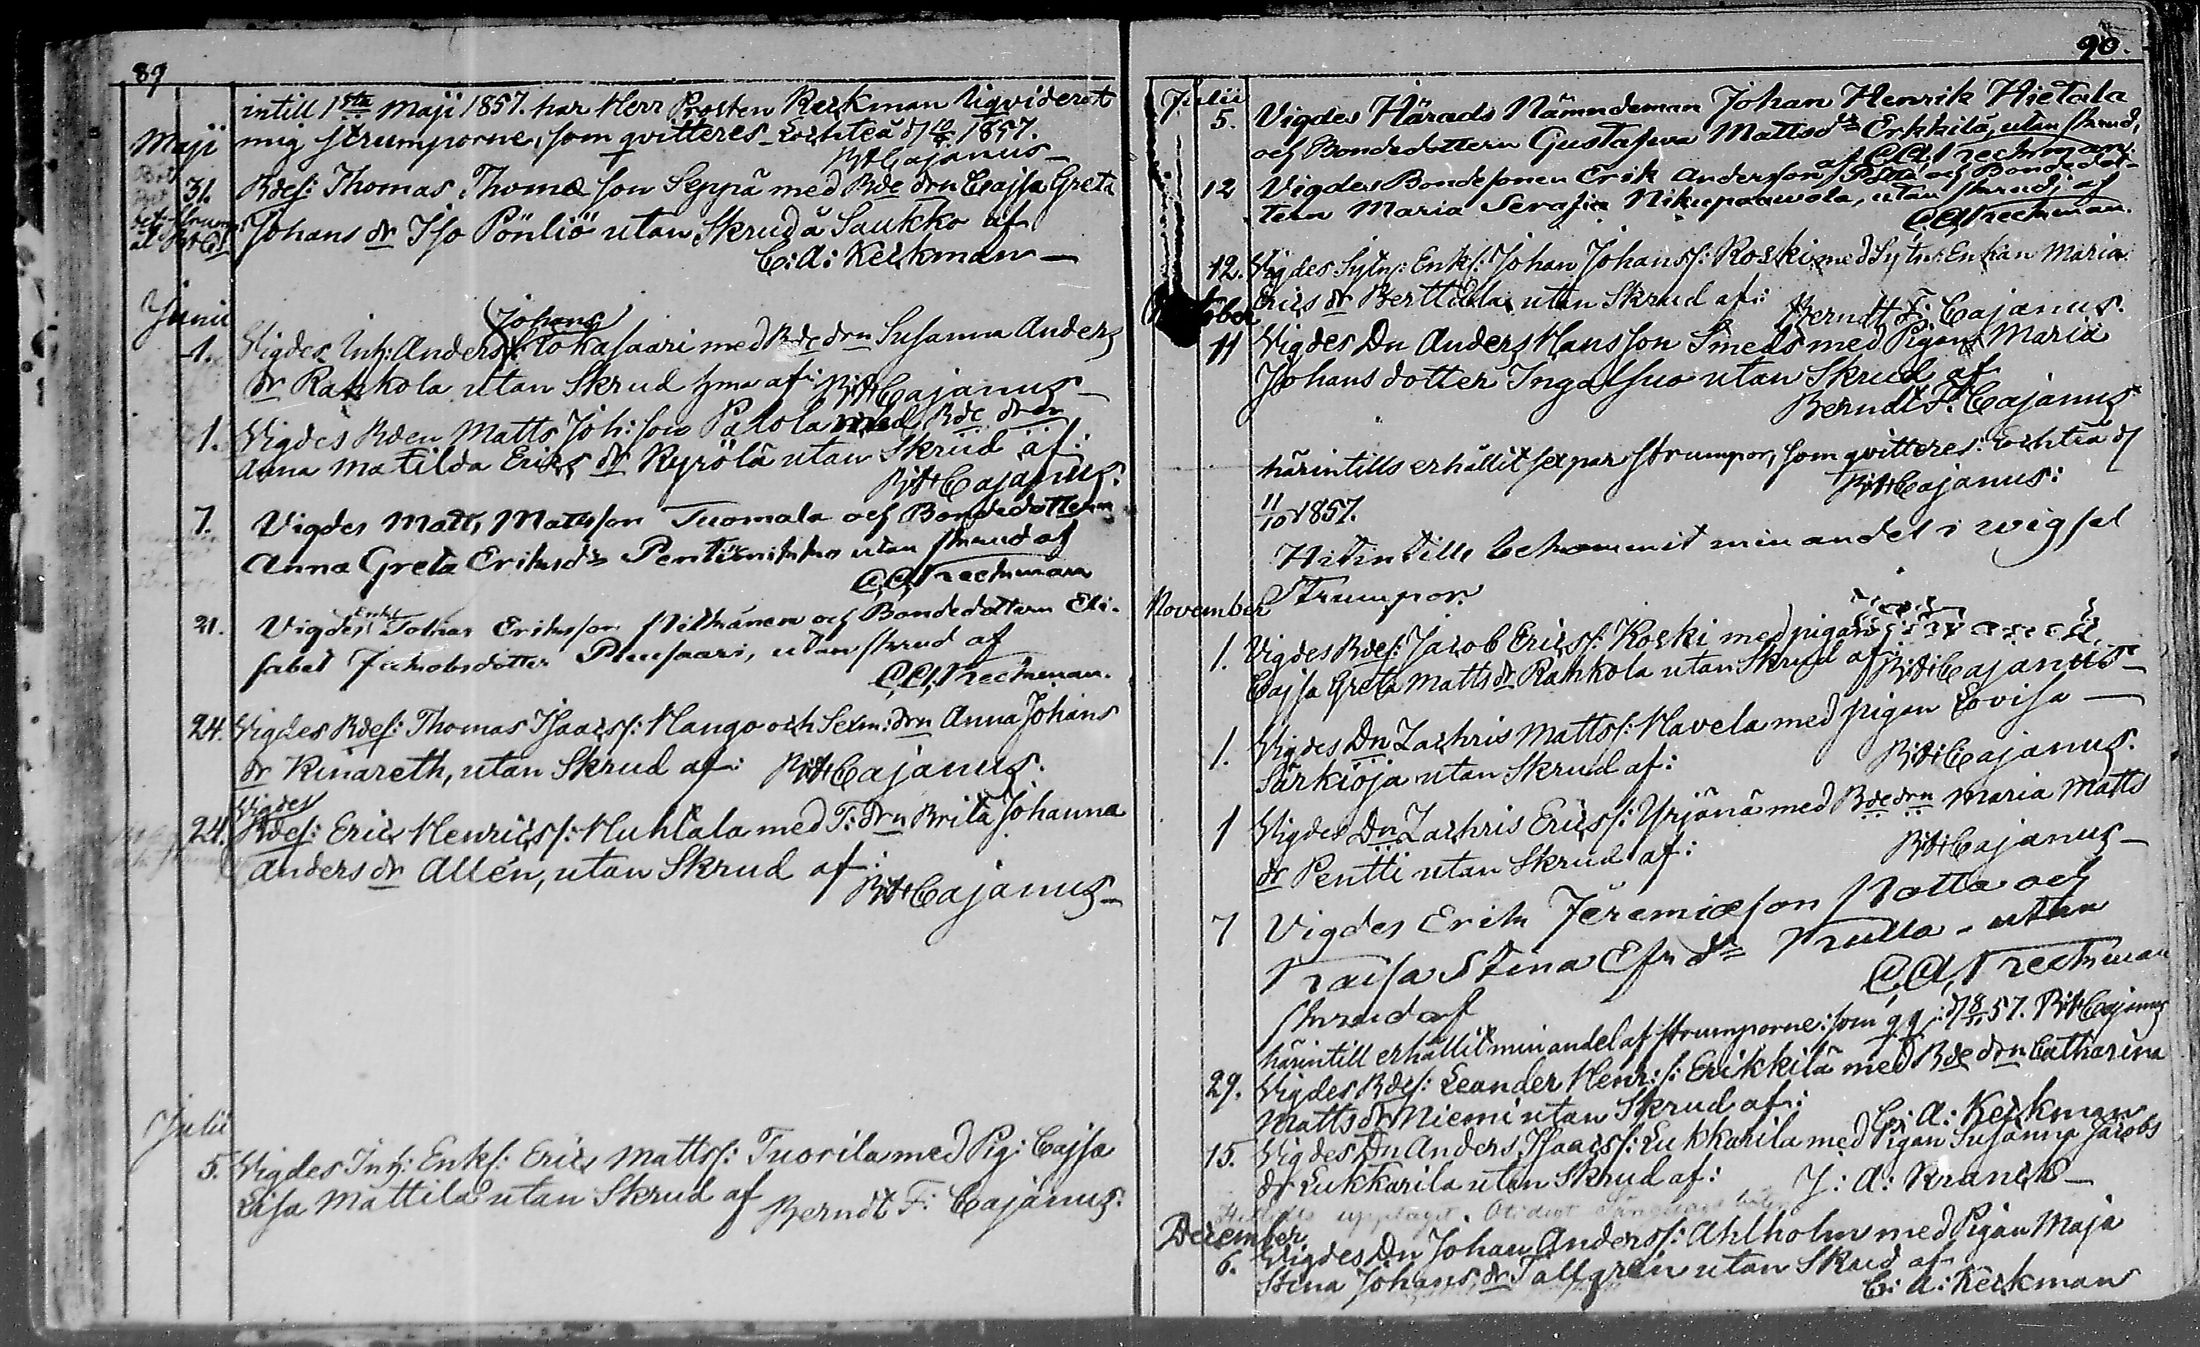 89
intill 1sta Maji 1857. har Herr Prosten Keckman liqviderat
Maji mig strumporne, som qvitteres. Lochteå d 10/5 1857.
B:F:Cajanus
31. Bdes: Thomas Thomæ son Seppä med Bde drn Cajsa Greta
Johans dr Iso Pönliö utan Skrud å Saukko af
C: A: Keckman
Junii
Johans
1. Vigdes Inh: Anders s: Lokasaari med Bde drn Susanna Anders
dr Rahkola utan Skrud hma af: B:F:Cajanus
1. Vigdes Bden Matts Joh: son Palola med Bde drn
Anna Matilda Erics dr Kyrölä utan Skrud af:
B:F:Cajanus:
7. Vigdes Matts Mattsson Tuomala och Bondedottern
Anna Greta Eriksdr utan skrud af
C. A. Keckman
Enkl
21. Vigdes Tobias Eriksson och Bondedottern Eli-
sabet Jakobsdotter Pensaari, utan skrud af
C. A. Keckman.
24. Vigdes Bdes: Thomas Isaacs s: Mango och Sexm: drn Anna Johans
dr Kinareth, utan Skrud af: B:F:Cajanus:
Vigdes
24. Bdes: Erics Henrics s: Huhtala med T: drn Brita Johanna
Anders dr Allén, utan Skrud af:
B:F:Cajanus
Julii
5. Vigdes Inh: Enks: Erics Matts s: Tuorila med Pig: Cajsa
Lisa Mattila utan Skrud af Berndt F: Cajanus:
90.
Julii
5. Vigdes Härads Nämndeman Johan Henrik Hietala
och Bondedottern Gustafwa Mattsdr Erkkilä, utan skrud,
af C. A. Keckman.
12 Vigdes Bondesonen Erik Andersson Pottu och Bondedot-
tern Maria Serafia Nikupaawola, utan skrud; af
C. A. Keckman.
12. Vigdes Sytn: Enks: Johan Johans s: Koski med Sytn: Enkan Maria
Erics dr Berttula utan Skrud af: Berndt F: Cajanus.
October
11 Vigdes Dn Anders Hansson Smeds med Pigan Maria
Johans dotter Ingalsuo utan Skrud af
Berndt F: Cajanus
härintills erhållit sex par strumpor, som qvitteres: Lochteå d
11/10 1857. B:F:Cajanus:
Hitintills bekommit min andel i wigsel
Strumpor.
November
1. Vigdes Bdes: Jacob Erics s: Koski med pigan
Cajsa Greta Matts dr Rahkola utan Skrud af B:F:Cajanus
1. Vigdes Dn Zachris Matts s: Havela med pigan Lovisa
Särkioja utan Skrud af: B:F:Cajanus.
1 Vigdes Dn Zachris Erics s: Yrjänä med Bde drn Maria Matts
dr Pentti utan Skrud af: B:F:Cajanus
7 Vigdes Erik Jeremiæson Notta och
Kaisa Stina utan
skrud af C. A. Keckman
härintill erhållit min andel af strumporne: som qq: d 8/11 57. B:F:Cajanus
29. Vigdes Bdes: Leander Henr: s: Erikkilä med Bde drn Catharina
Matts dr Niemi utan Skrud af: C: A: Keckman
15. Vigdes Dn Anders Isaacs s: Lukkarila med Pigan Susanna Jacobs
dr Lukkarila utan Skrud af: J: A: Kranck
December
6. Vigdes Dn Johan Anders s: Ahlholm med Pigan Maja
Stina Johans dr Tallgrén utan Skrud af
C: A: Keckman